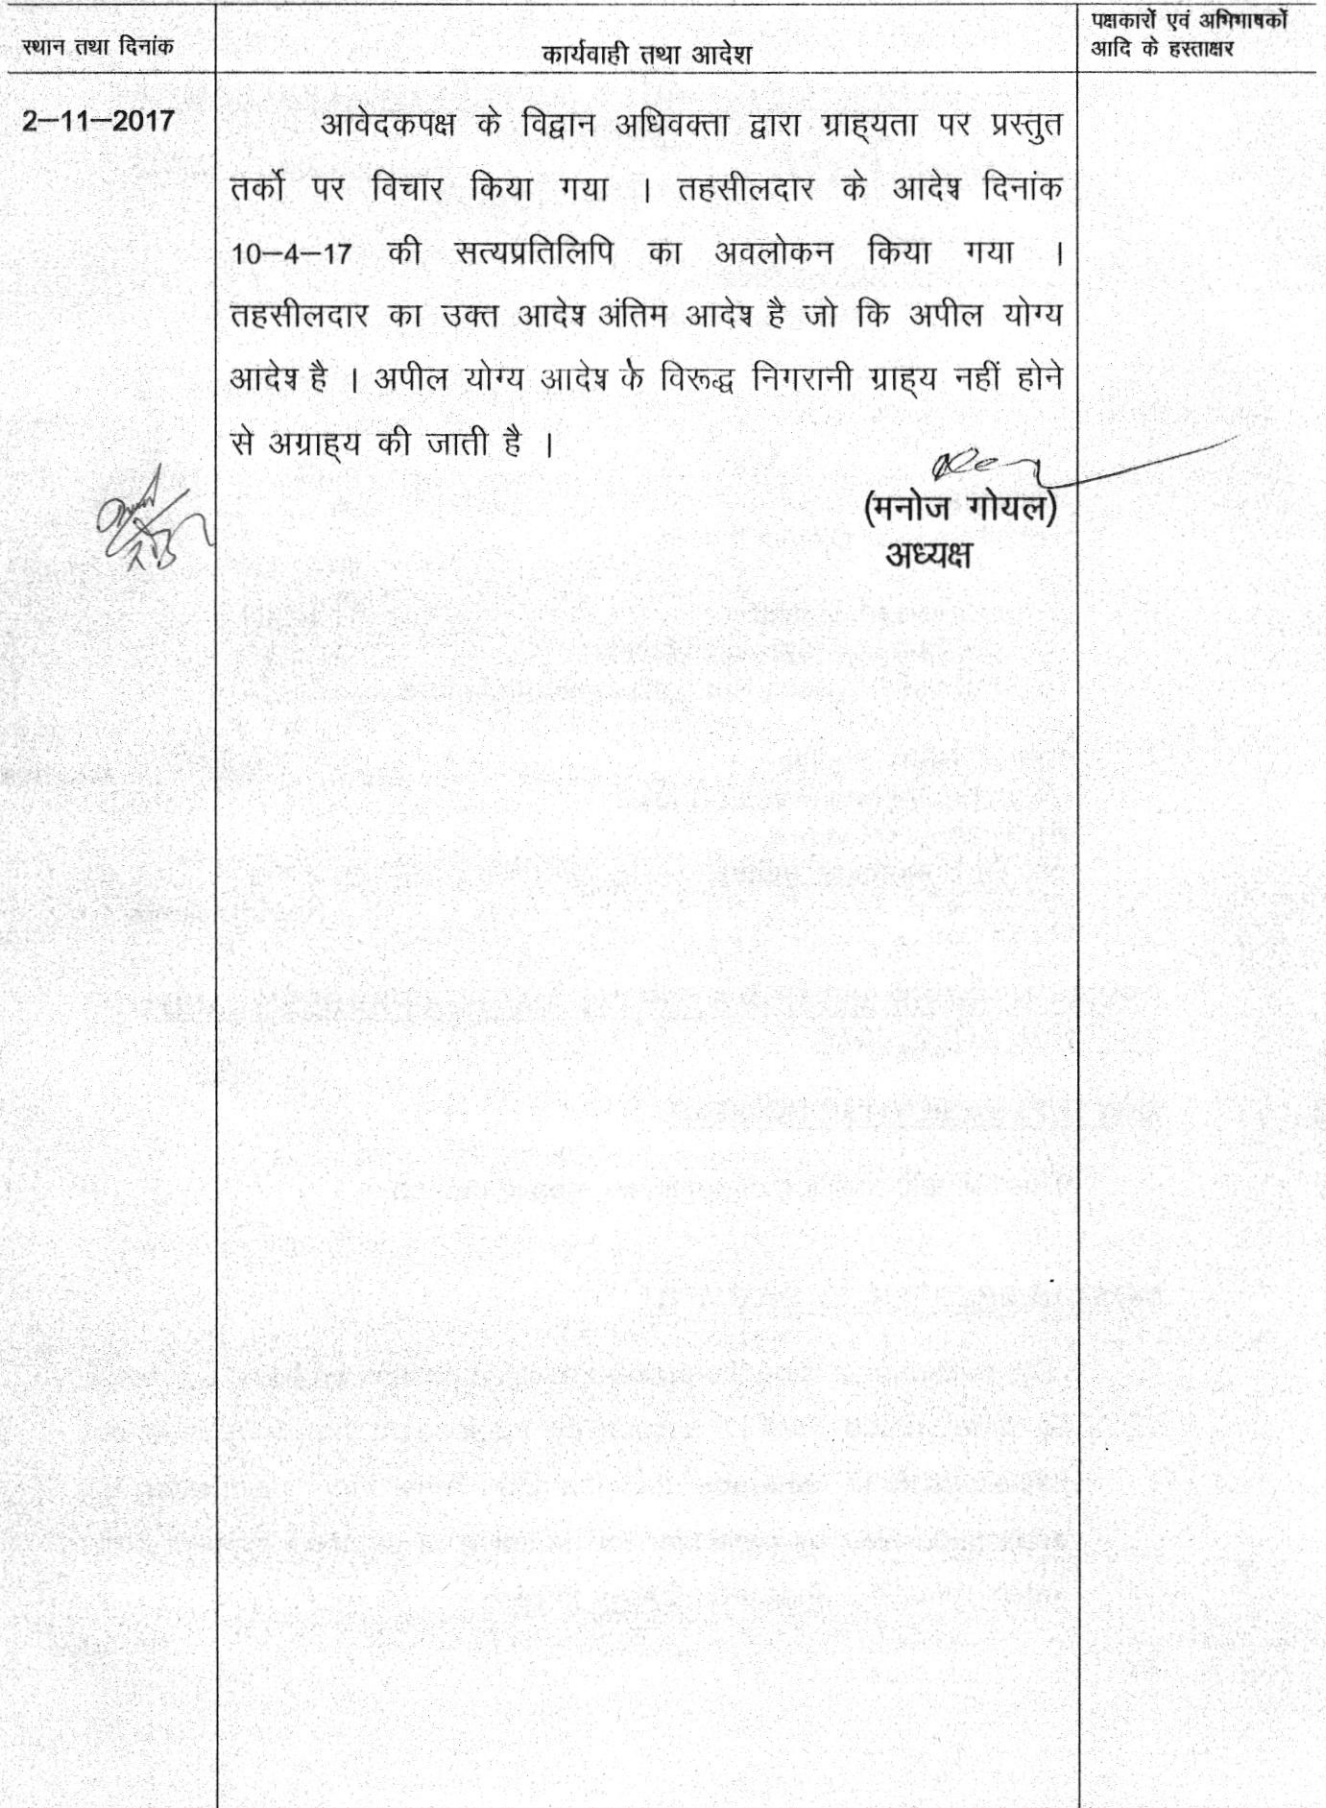 स्थान तथा दिनांक
कार्यवाही तथा आदेश
पक्षकारों एवं अभिभाषकों
आदि के हस्ताक्षर
2–11–2017
आवेदकपक्ष के विद्वान अधिवक्ता द्वारा ग्राह्यता पर प्रस्तुत
तर्को पर विचार किया गया । तहसीलदार के आदेश दिनांक
10–4–17 की सत्यप्रतिलिपि का अवलोकन किया गया ।
तहसीलदार का उक्त आदेश अंतिम आदेश है जो कि अपील योग्य
आदेश है । अपील योग्य आदेश के विरूद्ध निगरानी ग्राह्य नहीं होने
से अग्राह्य की जाती है ।
(मनोज गोयल)
अध्यक्ष